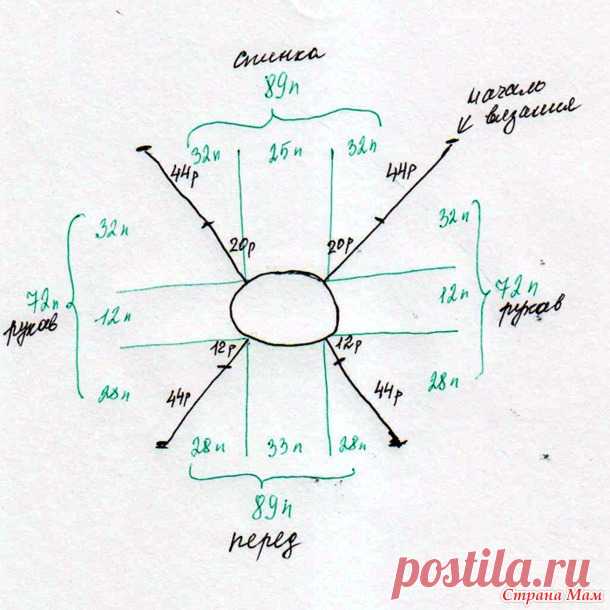 спинка
89п
начало
вязания
32п 25п 32п
44р 44р
32п 32п
20р 20р
72п 12п 12п 72п
рукав рукав
12р 12р
28п 44р 44р 28п
28п 33п 28п
89п
перед
postila.ru
Страна Мам